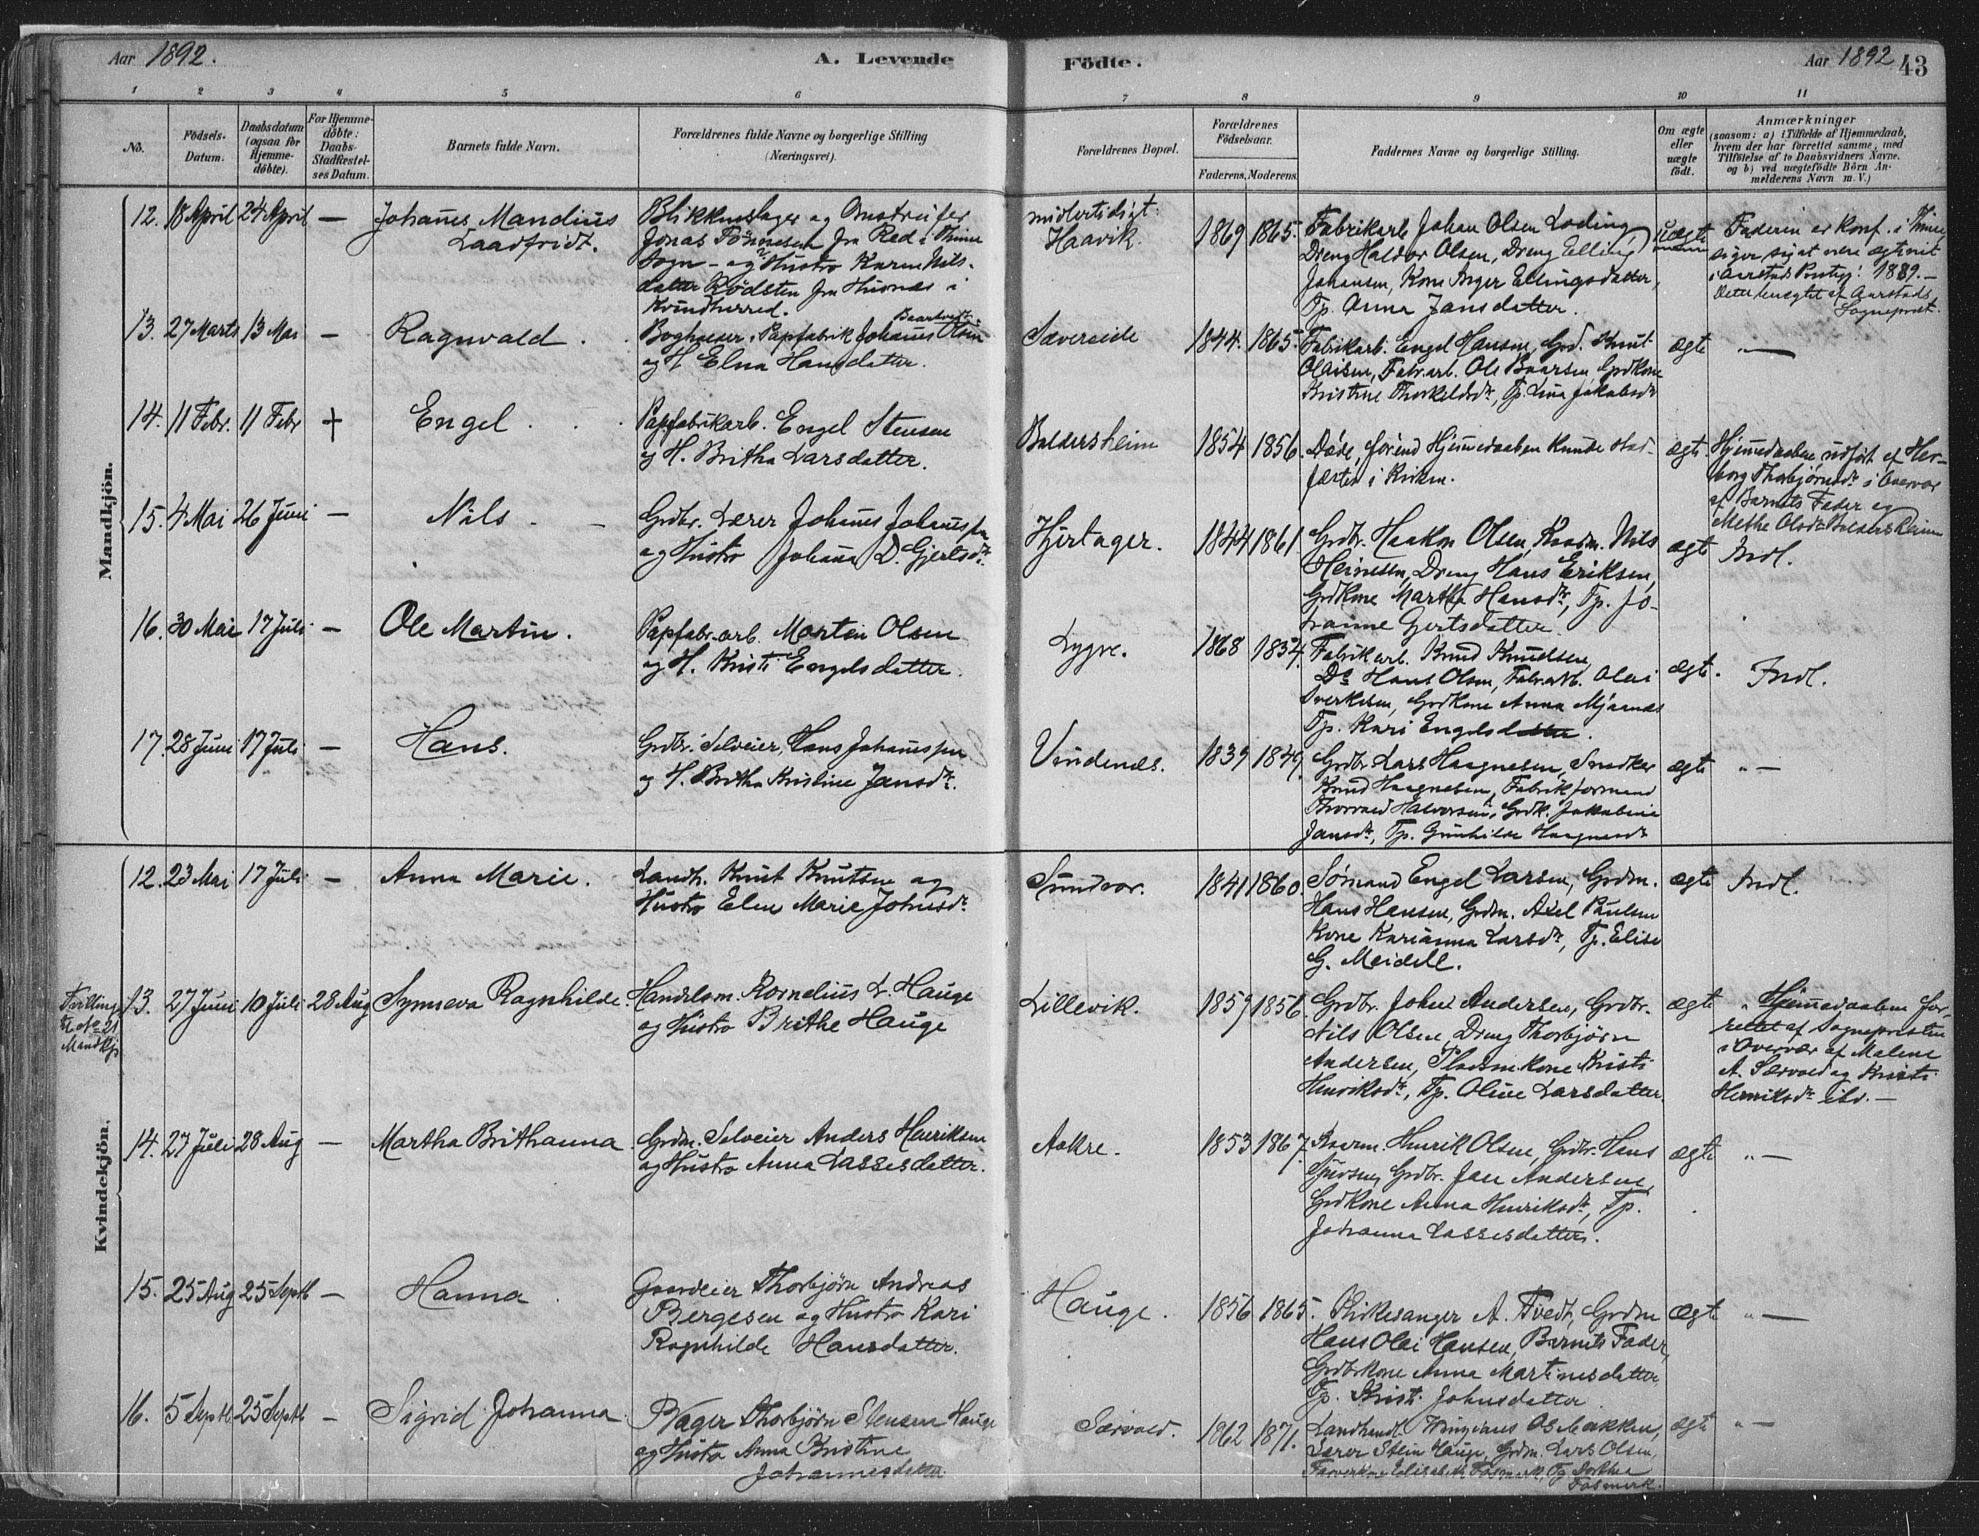 Aar 1892.
A. Levende
Födte.
Aar 1892
43
1 2 3 4 5 6 7 8 9 10 11
No.
Födsels-
Datum.
Daabsdatum
(ogsaa for
Hjemme-
döbte).
For Hjemme-
döbte:
Daabs-
Stadfæstel-
ses Datum.
Barnets fulde Navn.
Forældrenes fulde Navne og borgerlige Stilling
(Næringsvei).
Forældrenes Bopæl.
Forældrenes
Födselsaar.
Faderens. Moderens.
Faddernes Navne og borgerlige Stilling.
Om ægte
eller
uægte
født.
Anmærkninger
(saasom: a) i Tilfælde af Hjemmedaab,
hvem der har forrettet samme, med
Tilföielse af to Daabsvidners Navne.
og b) ved uægtefödte Börn An-
melderens Navn m. V.)
Mandkjön.
12. 18 April 24 April —
Johannes Mandius
Laadfridt.
Blikkenslager og
Jonas Tönnesen fra Red i Thime
Sogn - og Hustro Karen Nils-
datter Rödsten fra Husnæs i
Kvindherred.
midlertidigt:
Haavik.
1869 1865.
Fabrikarb. Johan Olsen Loding
Dreng Haldor Olsen, Dreng Elling
Johansen, Kone Inger Ellingsdatter,
Tp. Anna Jansdatter.
uægte
Faderen er Konf. i Thime
siger sig at være ægteviet
i Aarstad Prstgj: 1889.—
Dette benægtet af Aarstads
Sogneprest.
13. 27 Marts 13 Mai —
Ragnvald
Baartvedt
Boghuser, Papfabrik Johannes Olsen
og H. Elna Hansdatter.
Sæverside
1844. 1865.
Fabrikarb. Engel Hansen, Grd. Knut
Olaisen, Fabr.arb. Ole Baarsen, Grdkone
Kristine Thorkeldsdr, Tp. Lina Jakobsdr
ægte
" —
14. 11 Febr. 11 Febr +
Engel
Papfabrikarb. Engel Stensen
og H. Britha Larsdatter.
Baldersheim
1854 1856.
Døde, førend Hjemmedaaben kunde stad-
fæstes i Kirken.
ægte
Hjemmedaaben udført af Her-
borg Thorbjørnsdr i Overvær
af Barnets Fader og
Methe Olsdr Baldersheim
15. 4 Mai 26 Juni —
Nils
Grdbr. Lærer Johannes Johannessen
og Hustro Johanna D. Gjertsdr.
Hjertager.
1844 1861.
Grdbr. Haakon Olsen, Kaarm. Nils
Heinesen, Dreng Hans Eriksen,
Grdkone Martha Hansdr, Tp. Jo-
hanne Gjertsdatter.
ægte
Indl.
16. 30 Mai 17 Juli —
Ole Martin.
Papfabr.arb. Morten Olsen
og H. Kristi Engelsdatter.
Lygre.
1868 1854.
Fabrikarb. Knud Knudsen,
Do Hans Olsen, Fabr.arb. Olai
Sverkesen, Grdkone Anna Mjaanæs
Tp. Kari Engelsdatter.
ægte.
Indl.
17. 28 Juni 17 Juli —
Hans.
Grdbr. Selveier, Hans Johannessen
og H. Britha Kristine Jansdr.
Vindenæs.
1839 1849.
Grdbr. Lars Haagnesen, Snedker
Knud Haagnesen, Fabrikformand
Thorvald Halvorsen, Grdk. Jakobine
Jansdr, Tp. Gunhilde Haagnesdr
ægte
" —
Kvindekjön.
12. 23 Mai 17 Juli —
Anna Marie.
Landh. Knut Knutsen og
Hustro Elen Marie Johnsdr.
Sundvor.
1841 1860.
Sømand Engel Larsen, Grdm.
Hans Hansen, Grdm. Axel Paulsen
Kone Karianna Larsdr, Tp. Elise
G. Meidell.
ægte
Indl.
Tvilling
til No 21
Mandkj
13. 27 Juni 10 Juli 28 Aug
Synneva Ragnhilde.
Handelsm. Kornelius L. Hauge
og Hustro Brithe Hauge
Lillevik.
1859 1856.
Grdbr. Johan Andersen, Grdbr.
Nils Olsen, Dreng Thorbjørn
Andersen, Pladsm.kone Kristi
Henriksdr, Tp. Oline Larsdatter.
ægte
" Hjemmedaaben for-
rettet af Sognepresten
i Overvær af Malene
A. Særvold og Kristi
Henriksdr ibd. —
14. 27 Juli 28 Aug —
Martha Brithanna
Grdm. Selveier Anders Henriksen
og Hustro Anna Lassesdatter.
Aakre.
1853 1867.
Kaarm. Henrik Olsen, Grdbr. Hans
Sjursen, Grdbr. Jan Andersen,
Grdkone Anna Henriksdr, Tp.
Johanna Lassesdatter.
ægte
" —
15. 25 Aug 25 Septb —
Hanna
Gaardeier Thorbjørn Andreas
Bergesen og Hustro Kari
Ragnhilde Hansdatter.
Hauge.
1856 1865.
Kirkesanger A. Tvedt, Grdm
Hans Olai Hansen, Barnets Fader,
Grdbrkone Anna Martinesdatter,
Tp. Kristi Johnsdatter
Ægte
" —
16. 5 Septb 25 Septb —
Sigrid Johanna
Bager Thorbjørn Stensen Hauge
og Hustro Anna Kristine
Johannesdatter
Særvold.
1862 1871.
Landhandl. Osebakken,
Lærer Stein Hauge, Grdm. Lars Olsen,
Farverkone Elisabeth Fosmerk, Tp Dorthea
Fosmerk.
ægte
" —